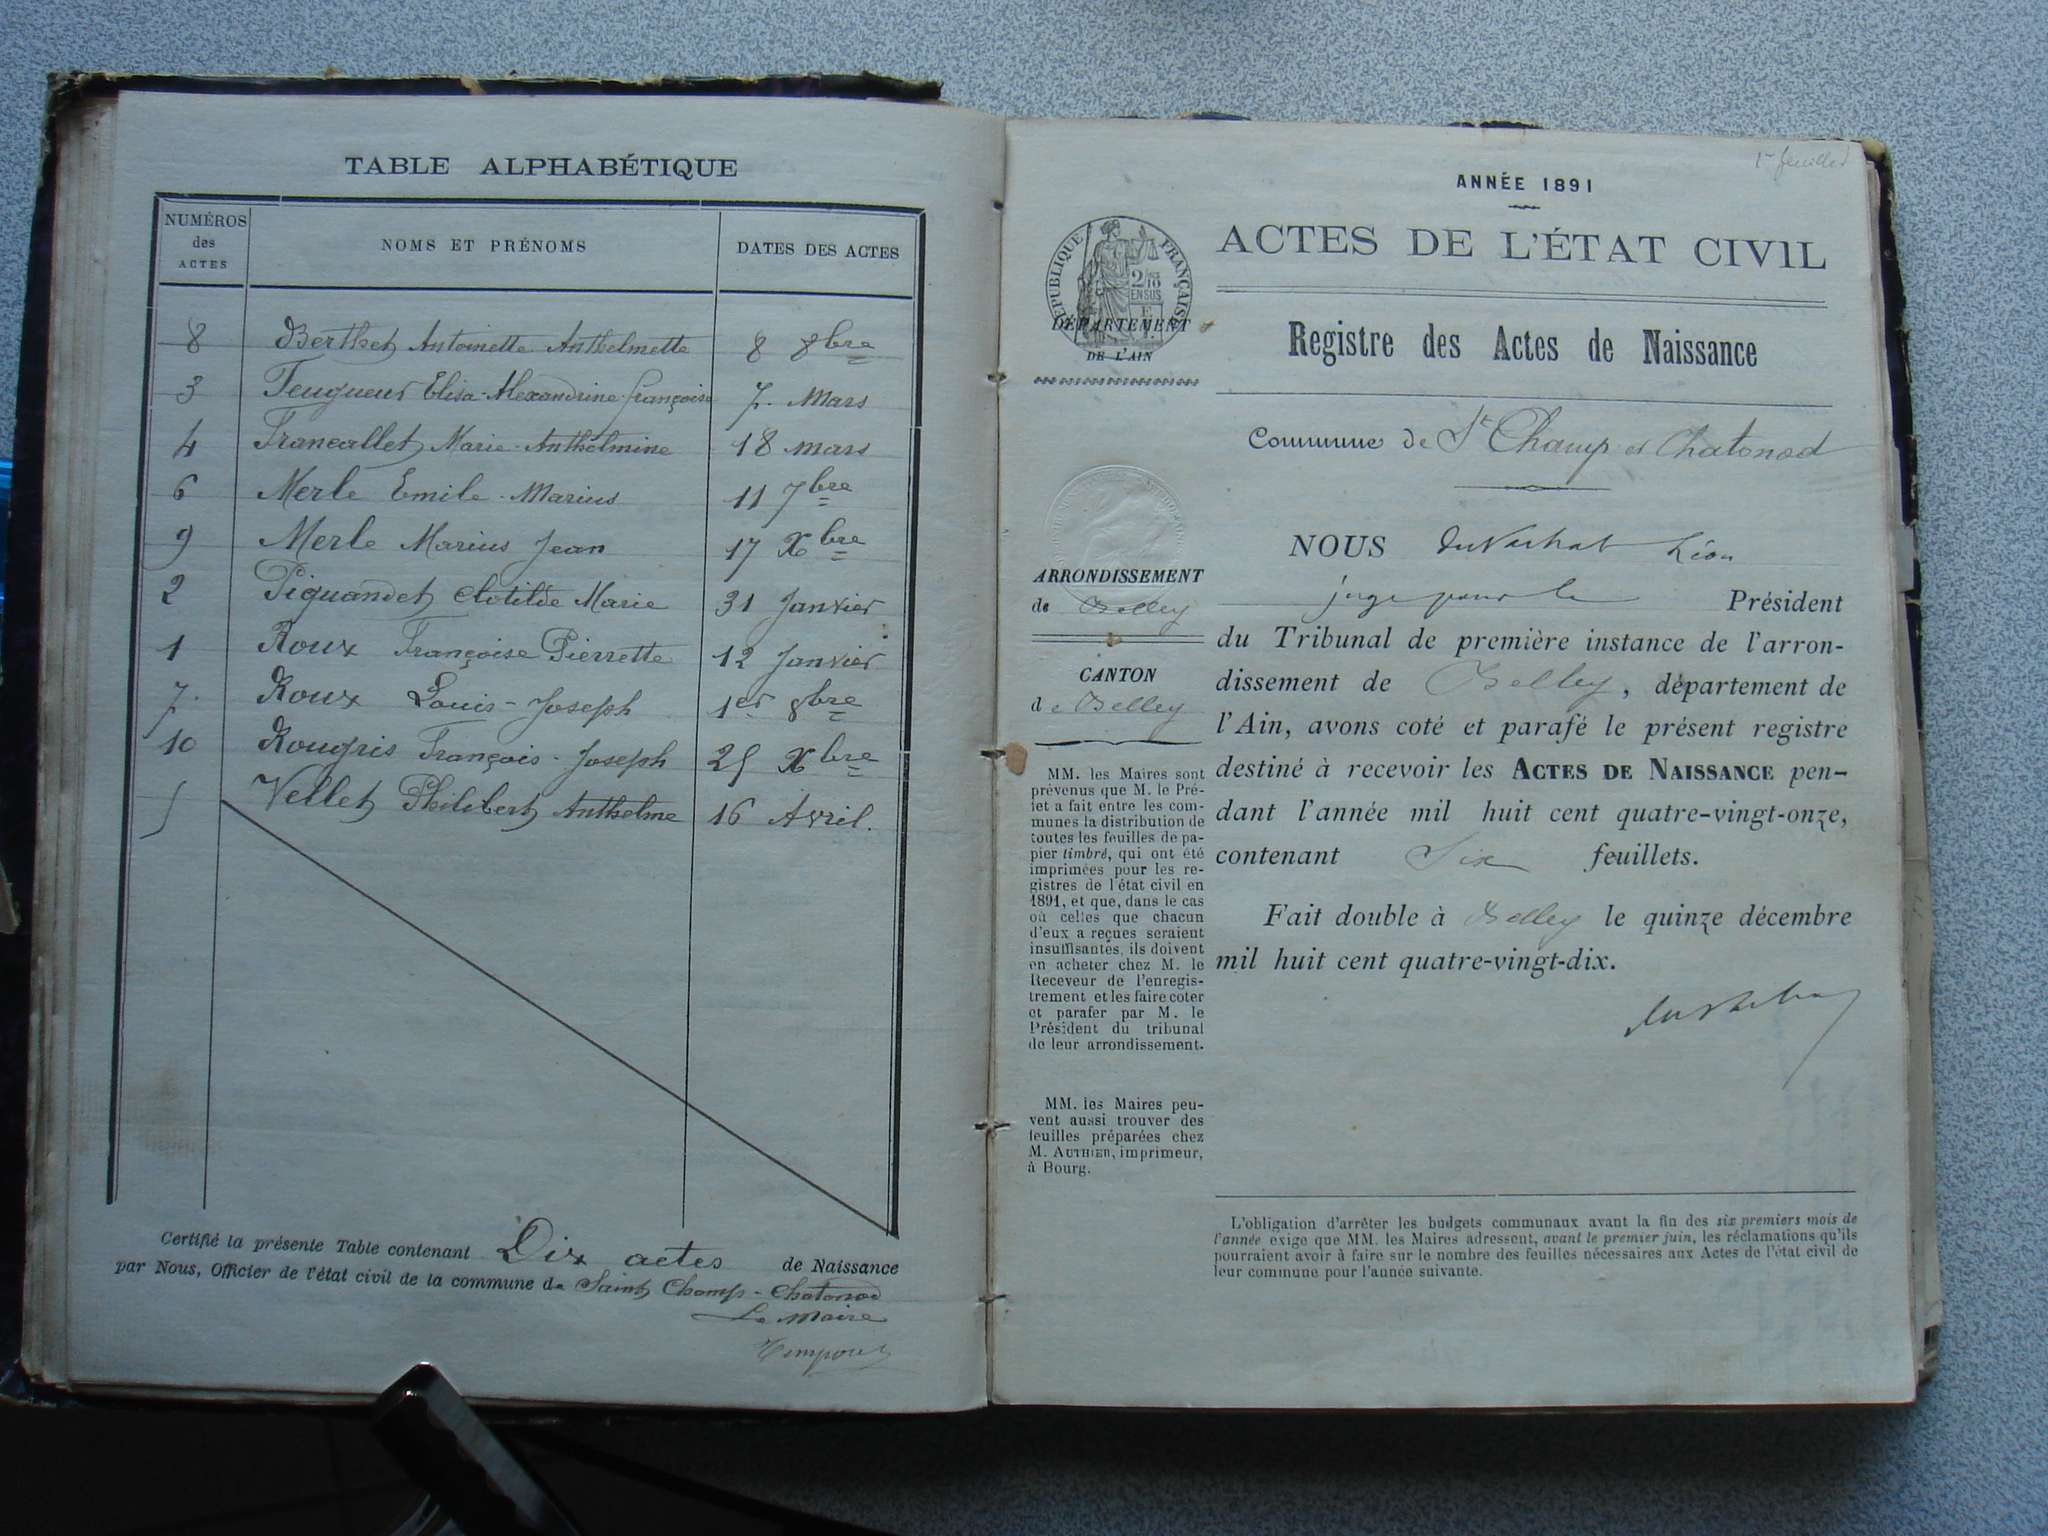 TABLE ALPHABÉTIQUE
NUMÉROS des ACTES
NOMS ET PRÉNOMS
DATES DES ACTES
8 Berthet Antoinette Anthelmette 8 8bre
3 Feugueur Elisa-Alexandrine-Françoise 7. Mars
4 Francallet Marie-Anthelmine 18 mars
6 Merle Emile-Marius 11 7bre
9 Merle Marius Jean 17 Xbre
2 Piquandet Clotilde Marie 31 Janvier
1 Roux Françoise Pierrette 12 Janvier
7. Roux Louis-Joseph 1er 8bre
10 Rougris François-Joseph 25 Xbre
5 Vellet Philibert Anthelme 16 Avril.
Certifié la présente Table contenant Dix actes de Naissance
par Nous, Officier de l'état civil de la commune de Saint Champ-Chatonod
Le Maire
1er feuillet
ANNÉE 1891
ACTES DE L'ÉTAT CIVIL
RÉPUBLIQUE FRANÇAISE
2/10 EN SUS
DÉPARTEMENT
DE L'AIN
Registre des Actes de Naissance
Commune de St Champ et Chatonod
ARRONDISSEMENT
de Belley
CANTON
de Belley
MM. les Maires sont
prévenus que M. le Pré-
fet a fait entre les com-
munes la distribution de
toutes les feuilles de pa-
pier timbré, qui ont été
imprimées pour les re-
gistres de l'état civil en
1891, et que, dans le cas
où celles que chacun
d'eux a reçues seraient
insuffisantes, ils doivent
en acheter chez M. le
Receveur de l'enregis-
trement et les faire coter
et parafer par M. le
Président du tribunal
de leur arrondissement.
MM. les Maires peu-
vent aussi trouver des
feuilles préparées chez
M. AUTHIER, imprimeur,
à Bourg.
NOUS Léon
juge pour le Président
du Tribunal de première instance de l'arron-
dissement de Belley, département de
l'Ain, avons coté et parafé le présent registre
destiné à recevoir les ACTES DE NAISSANCE pen-
dant l'année mil huit cent quatre-vingt-onze,
contenant Six feuillets.
Fait double à Belley le quinze décembre
mil huit cent quatre-vingt-dix.
L'obligation d'arrêter les budgets communaux avant la fin des six premiers mois de
l'année exige que MM. les Maires adressent, avant le premier juin, les réclamations qu'ils
pourraient avoir à faire sur le nombre des feuilles nécessaires aux Actes de l'état civil de
leur commune pour l'année suivante.